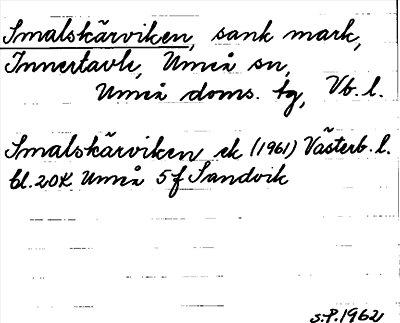 Smalskärviken, sank mark,
Innertavle, Umeå sn,
Umeå doms. tg, Vb. l.
Smalskärviken ek (1961) Västerb. l.
bl. 20K Umeå 5 f Sandvik
S.P. 1962